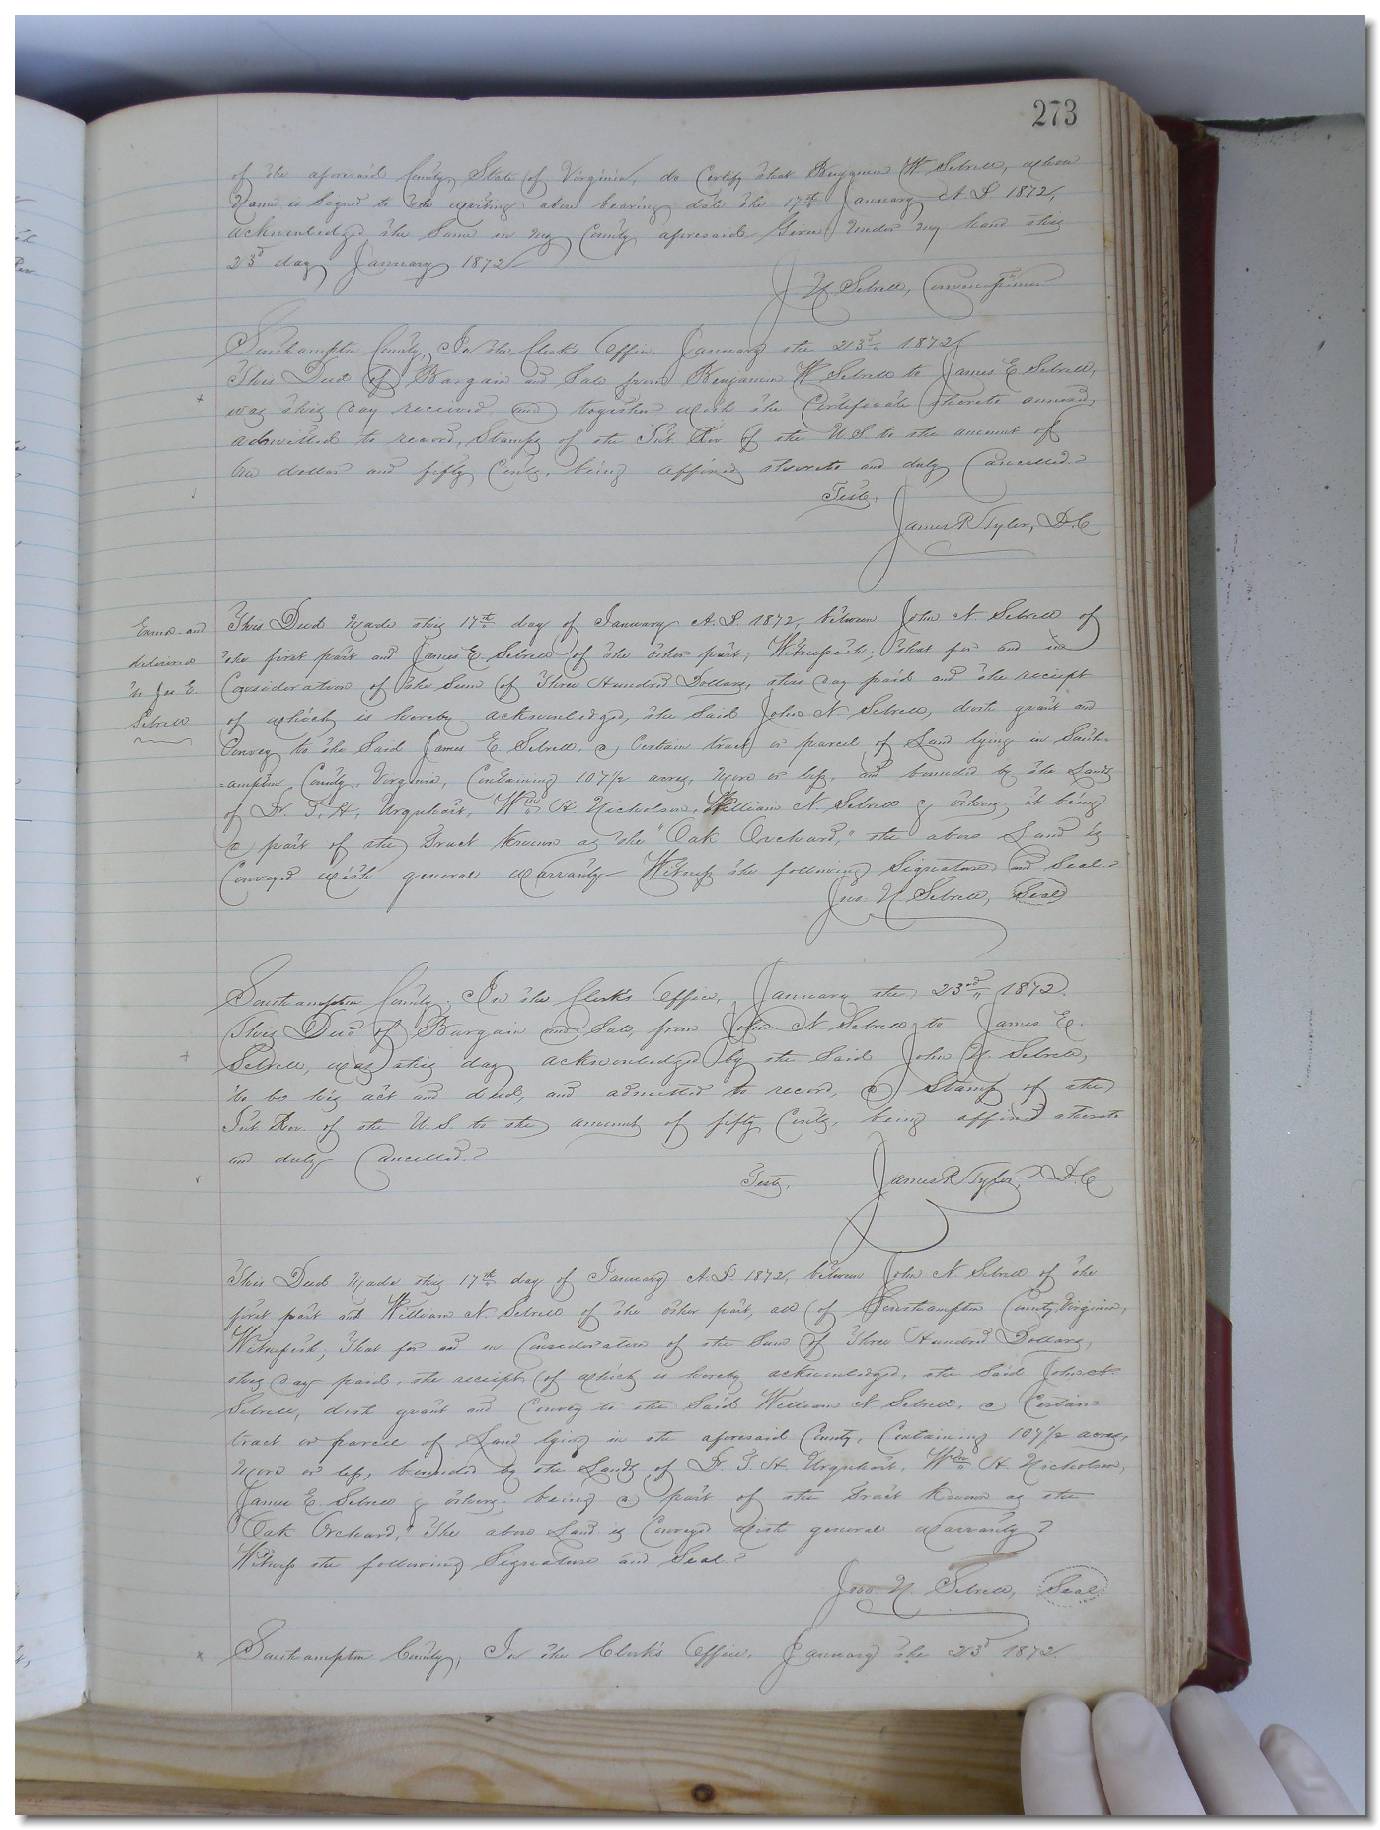 273
of the aforesaid County, State of Virginia, do Certify that Benjamin W Sebrell, whose
Name is Signed to the writing above bearing date the 17th January A.D 1872,
acknowledged the Same in my County aforesaid Given Under my hand this
23d day January 1872
J N Sebrell, Commissioner
Southampton County, In the Clerk's Office January the 23d 1872
This Deed of Bargain and Sale from Benjamin W Sebrell to James E Sebrell,
was this day received and together with the Certificate thereto annexed,
admitted to record, Stamps of the Int Rev of the U.S to the amount of
One dollar and fifty Cents, being affixed thereto and duly Cancelled.
Teste,
James R Tyler, D.C
Exmd and
delivered
to Jas E.
Sebrell
This Deed Made this 17th day of January A.D. 1872, between John N. Sebrell of
the first part and James E. Sebrell of the other part, Witnesseth, that for and in
Consideration of the Sum of Three Hundred Dollars, this day paid and the receipt
of which is hereby acknowledged, the Said John N Sebrell, doth grant and
Convey to the Said James E Sebrell, a Certain tract or parcel of Land lying in South=
=ampton County, Virginia, Containing 107½ acres, More or less, and bounded by the Lands
of Dr. T. H. Urquhart, Wm H Nicholson, William N. Sebrell & others, it being
a part of the Tract Known as the "Oak Orchard," the above Land is
Conveyed with general warranty— Witness the following Signature and Seal.
Jno. N Sebrell, Seal
Southampton County, In the Clerk's Office, January the 23rd 1872.
This Deed of Bargain and Sale, from John N Sebrell to James E.
Sebrell, was this day acknowledged by the Said John N Sebrell,
to be his act and deed, and admitted to record, a Stamp of the
Int Rev. of the U.S. to the amount of fifty Cents, being affixed thereto
and duly Cancelled.
Teste,
James R Tyler, D.C
This Deed Made this 17th day of January A.D. 1872, between John N Sebrell of the
first part and William N. Sebrell of the other part, all of Southampton County, Virginia,
Witnesseth, That for and in Consideration of the Sum of Three Hundred Dollars,
this day paid, the receipt of which is hereby acknowledged, the Said John N.
Sebrell, doth grant and Convey to the Said William N Sebrell, a Certain
tract or parcel of Land lying in the aforesaid County, Containing 107½ acres,
More or less, bounded by the Lands of Dr. T. H. Urquhart, Wm H. Nicholson,
James E. Sebrell & others, being a part of the Tract Known as the
"Oak Orchard," The above Land is Conveyed with general warranty
Witness the following Signature and Seal.
Jno. N. Sebrell, Seal
Southampton County, In the Clerk's Office, January the 23d 1872